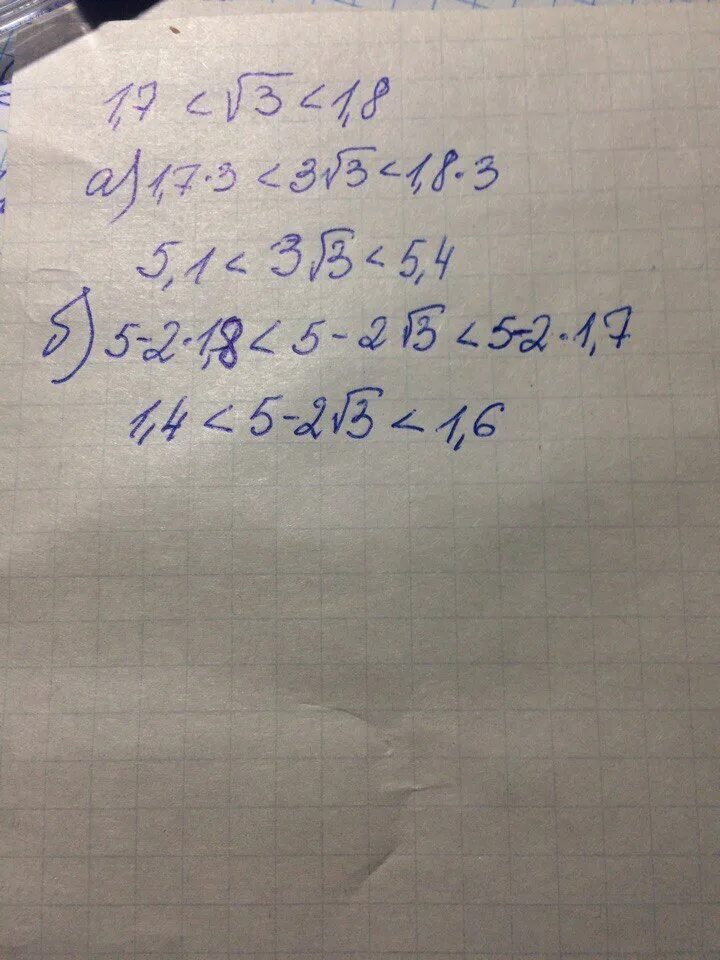 1,7 < √3 < 1,8
а) 1,7·3 < 3√3 < 1,8·3
5,1 < 3√3 < 5,4
б) 5-2·1,8 < 5-2√3 < 5-2·1,7
1,4 < 5-2√3 < 1,6